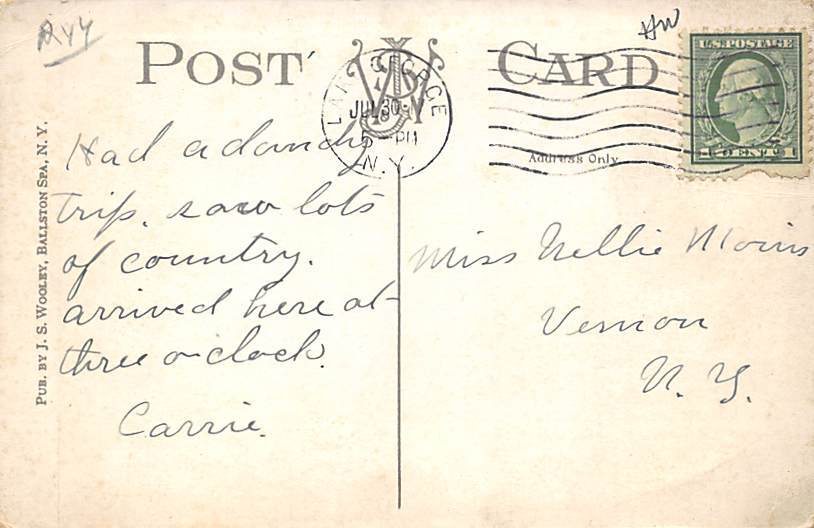 POST CARD
U.S. POSTAGE
1 CENT 1
LAKE GEORGE
JUL 30
5 - PM
N.Y.
Address Only
PUB. BY J. S. WOOLEY, BALLSTON SPA, N. Y.
Had a dandy
trip. saw lots
of country.
arrived here at
three o'clock.
Carrie.
Miss Nellie
Vernon
N. Y.